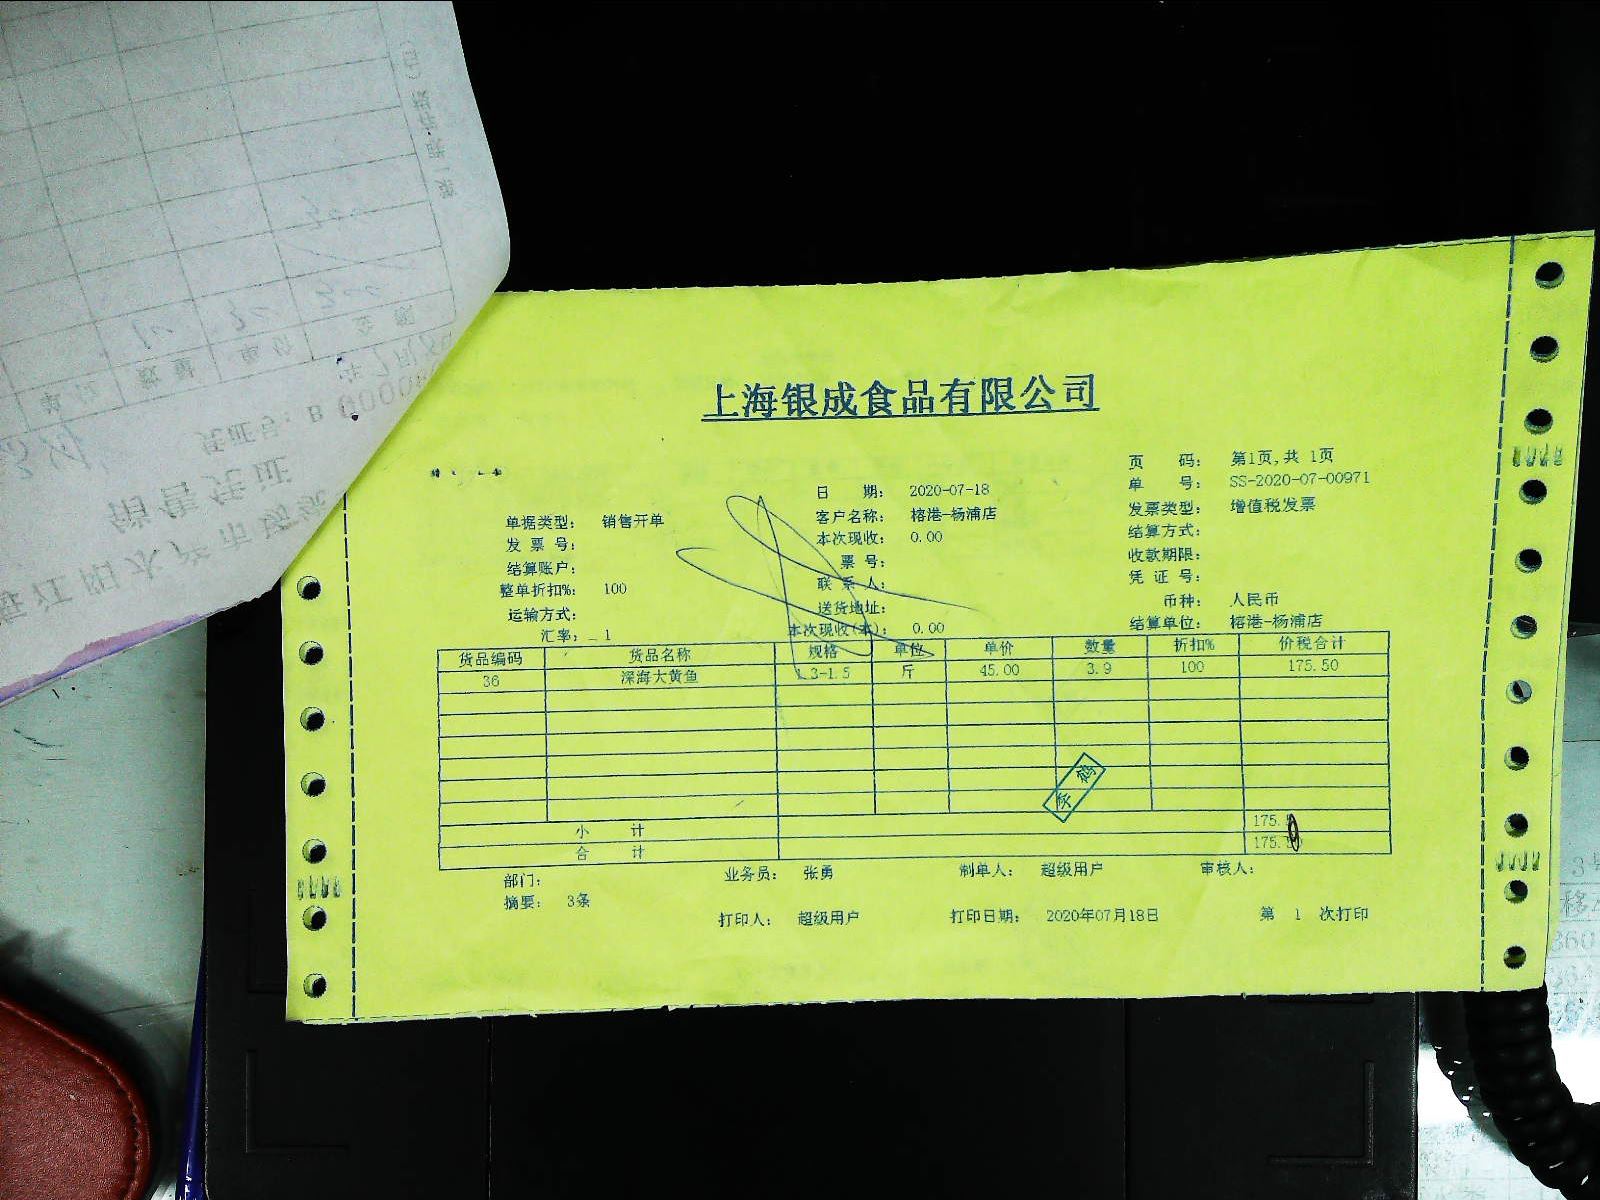 上海银成食品有限公司
页 码： 第1页,共 1页
日 期： 2020-07-18 单 号： SS-2020-07-00971
单据类型： 销售开单 客户名称： 榕港-杨浦店 发票类型： 增值税发票
发 票 号： 本次现收： 0.00 结算方式：
结算账户： 票 号： 收款期限：
整单折扣%： 100 联 系 人： 凭 证 号：
运输方式： 送货地址： 币种： 人民币
汇率： 1 本次现收(本)： 0.00 结算单位： 榕港-杨浦店
货品编码 货品名称 规格 单位 单价 数量 折扣% 价税合计
36 深海大黄鱼 1.3-1.5 斤 45.00 3.9 100 175.50
小 计 175.5
合 计
部门： 业务员： 张勇 制单人： 超级用户 审核人：
摘要： 3条
打印人： 超级用户 打印日期： 2020年07月18日 第 1 次打印
销售凭证
凭证号
数量 单价 金额